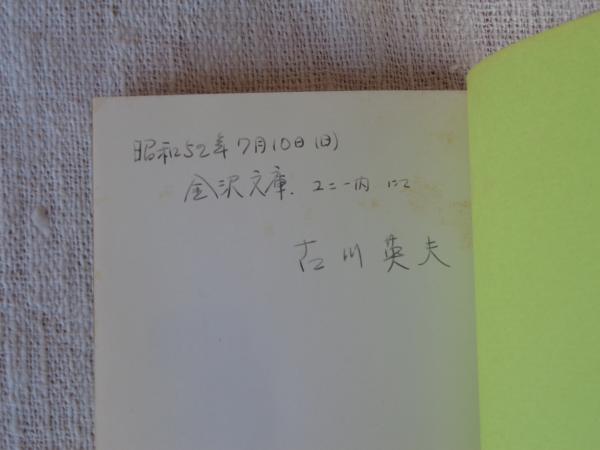 昭和52年7月10日(日)
金沢文庫. ユニー内 にて
古川英夫